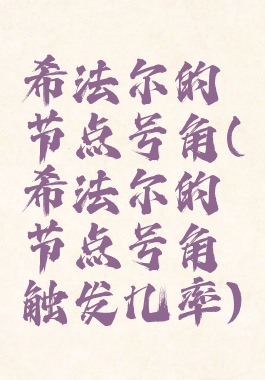 希法尔的
节点号角(
希法尔的
节点号角
触发几率)